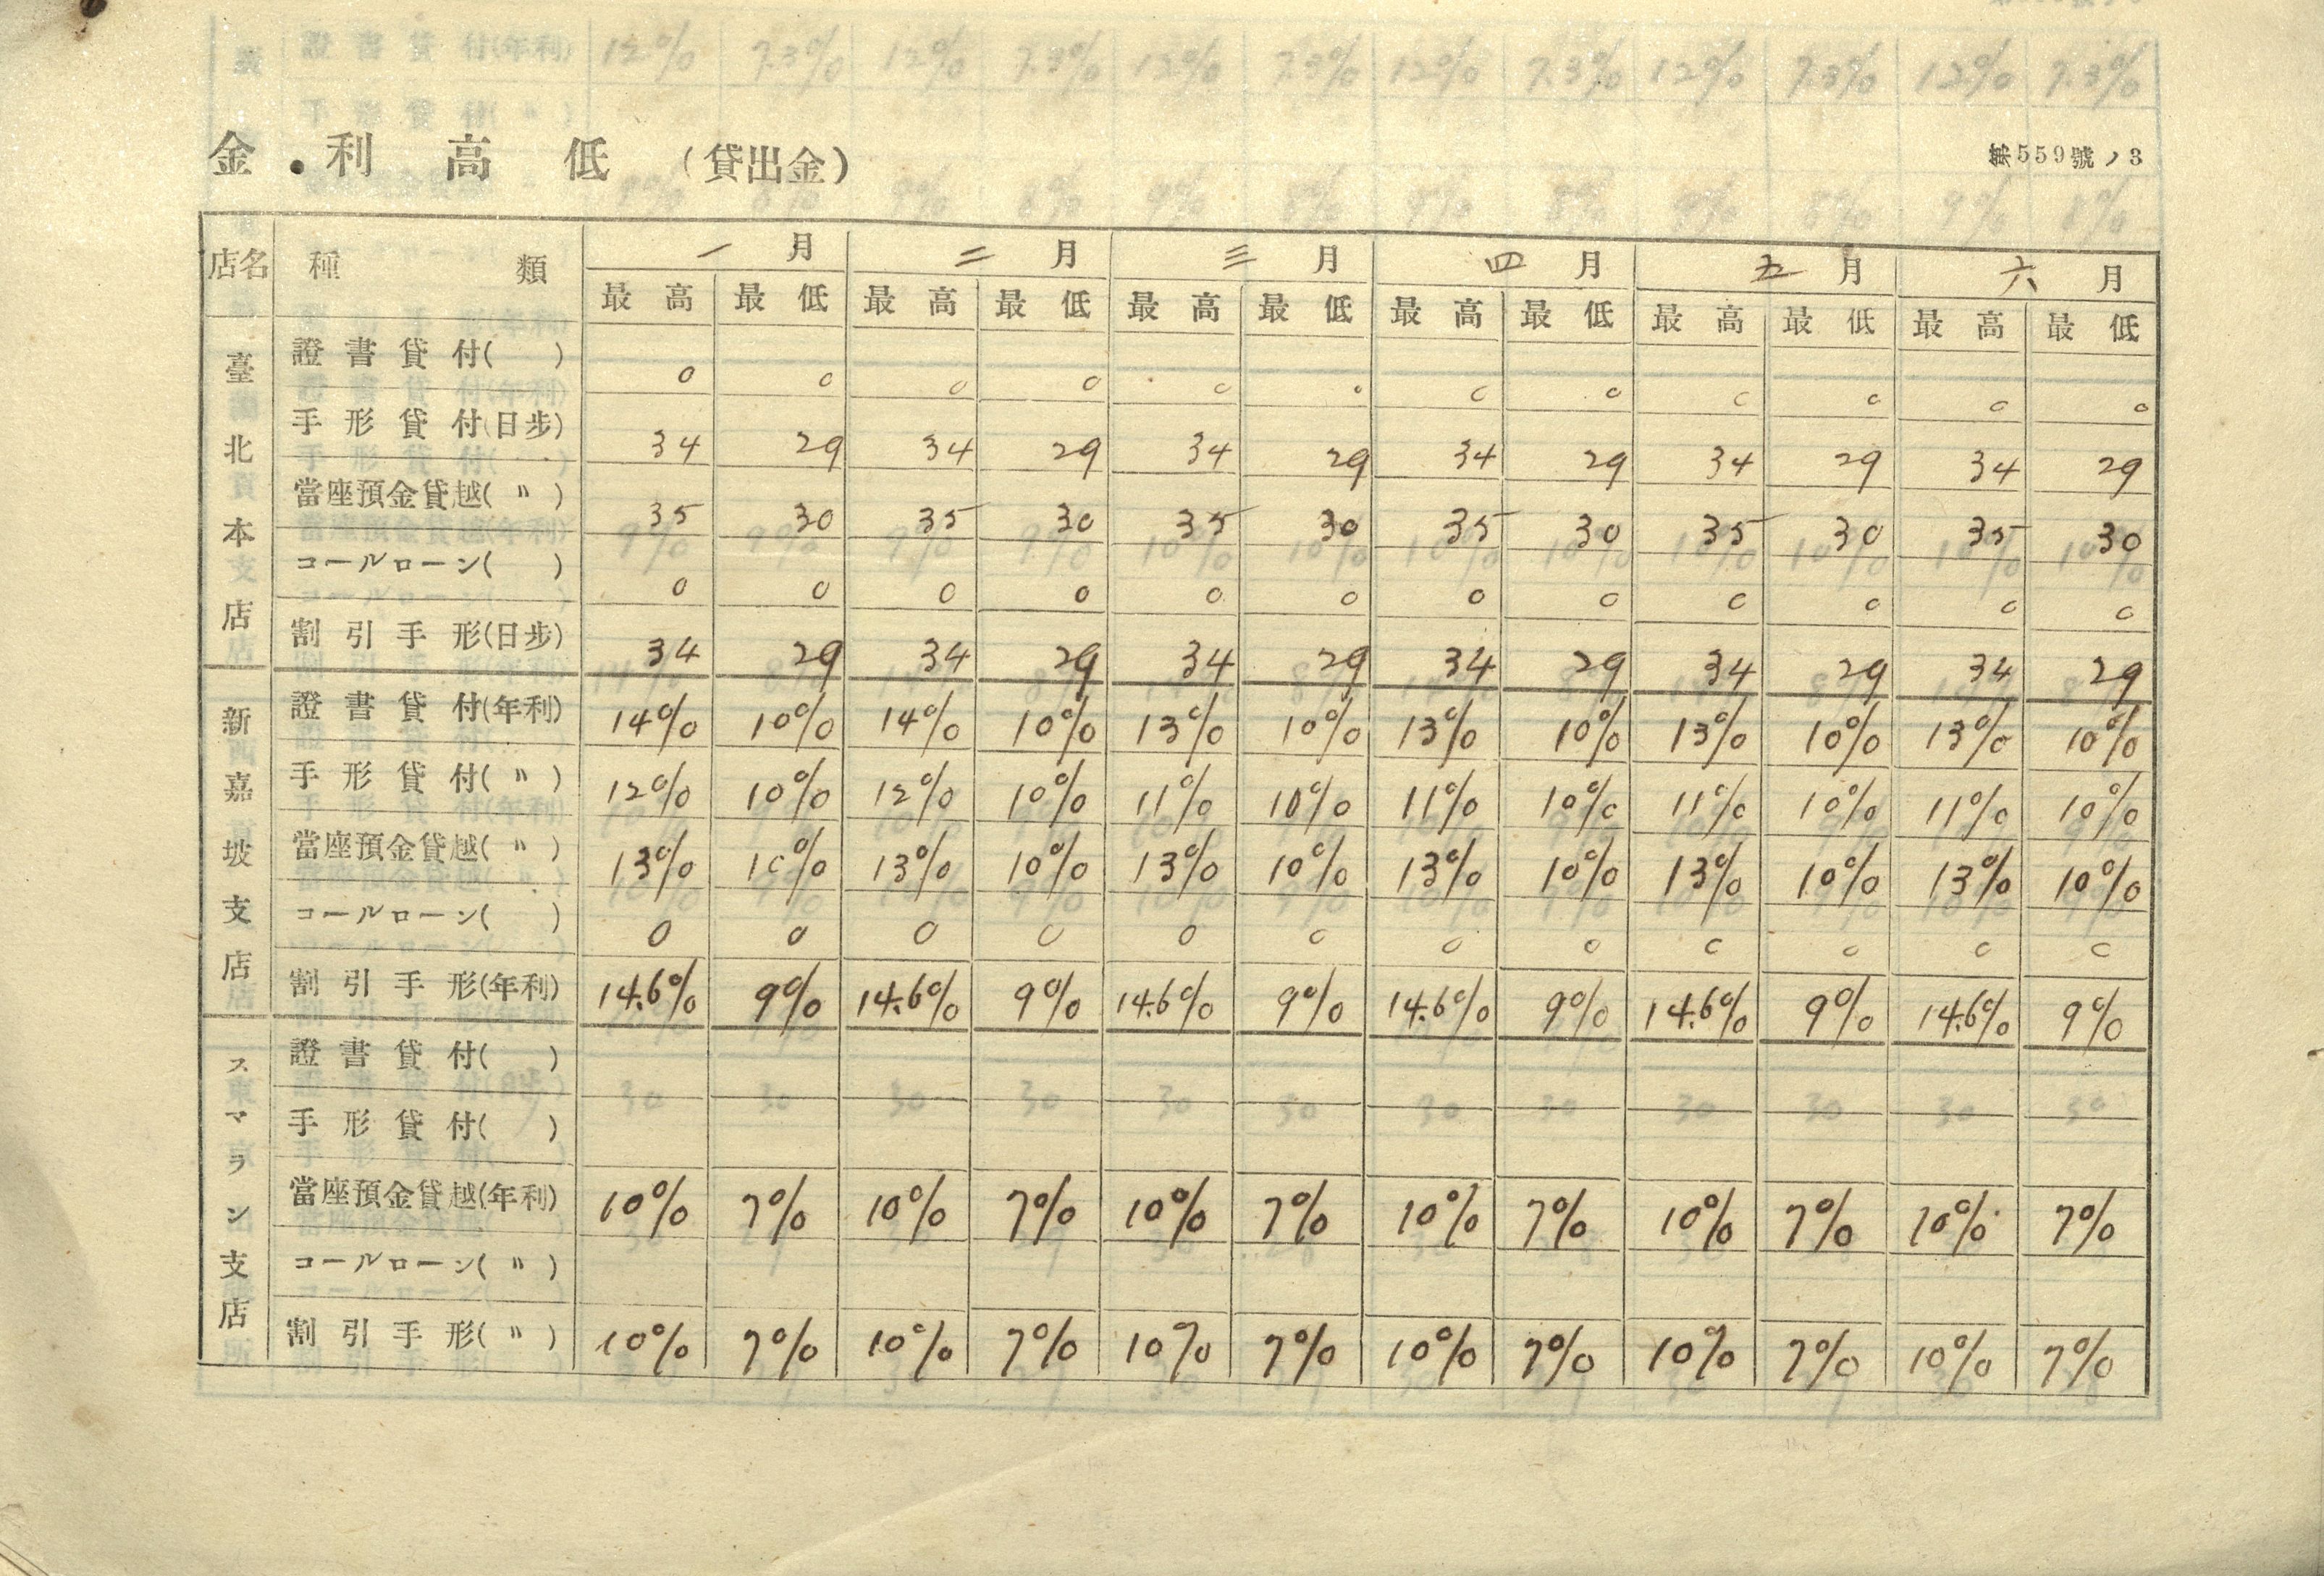 金利高低(貸出金)
第559號ノ3
店名 種類 一月 二月 三月 四月 五月 六月
最高 最低 最高 最低 最高 最低 最高 最低 最高 最低 最高 最低
臺北本店
證書貸付( ) 0 0 0 0 0 0 0 0 0 0 0 0
手形貸付(日步) 34 29 34 29 34 29 34 29 34 29 34 29
當座預金貸越(〃) 35 30 35 30 35 30 35 30 35 30 35 30
コールローン( ) 0 0 0 0 0 0 0 0 0 0 0 0
割引手形(日步) 34 29 34 29 34 29 34 29 34 29 34 29
新嘉坡支店
證書貸付(年利) 14% 10% 14% 10% 13% 10% 13% 10% 13% 10% 13% 10%
手形貸付(〃) 12% 10% 12% 10% 11% 10% 11% 10% 11% 10% 11% 10%
當座預金貸越(〃) 13% 10% 13% 10% 13% 10% 13% 10% 13% 10% 13% 10%
コールローン( ) 0 0 0 0 0 0 0 0 0 0 0 0
割引手形(年利) 14.6% 9% 14.6% 9% 14.6% 9% 14.6% 9% 14.6% 9% 14.6% 9%
スマラン支店
證書貸付( )
手形貸付( )
當座預金貸越(年利) 10% 7% 10% 7% 10% 7% 10% 7% 10% 7% 10% 7%
コールローン(〃)
割引手形(〃) 10% 7% 10% 7% 10% 7% 10% 7% 10% 7% 10% 7%